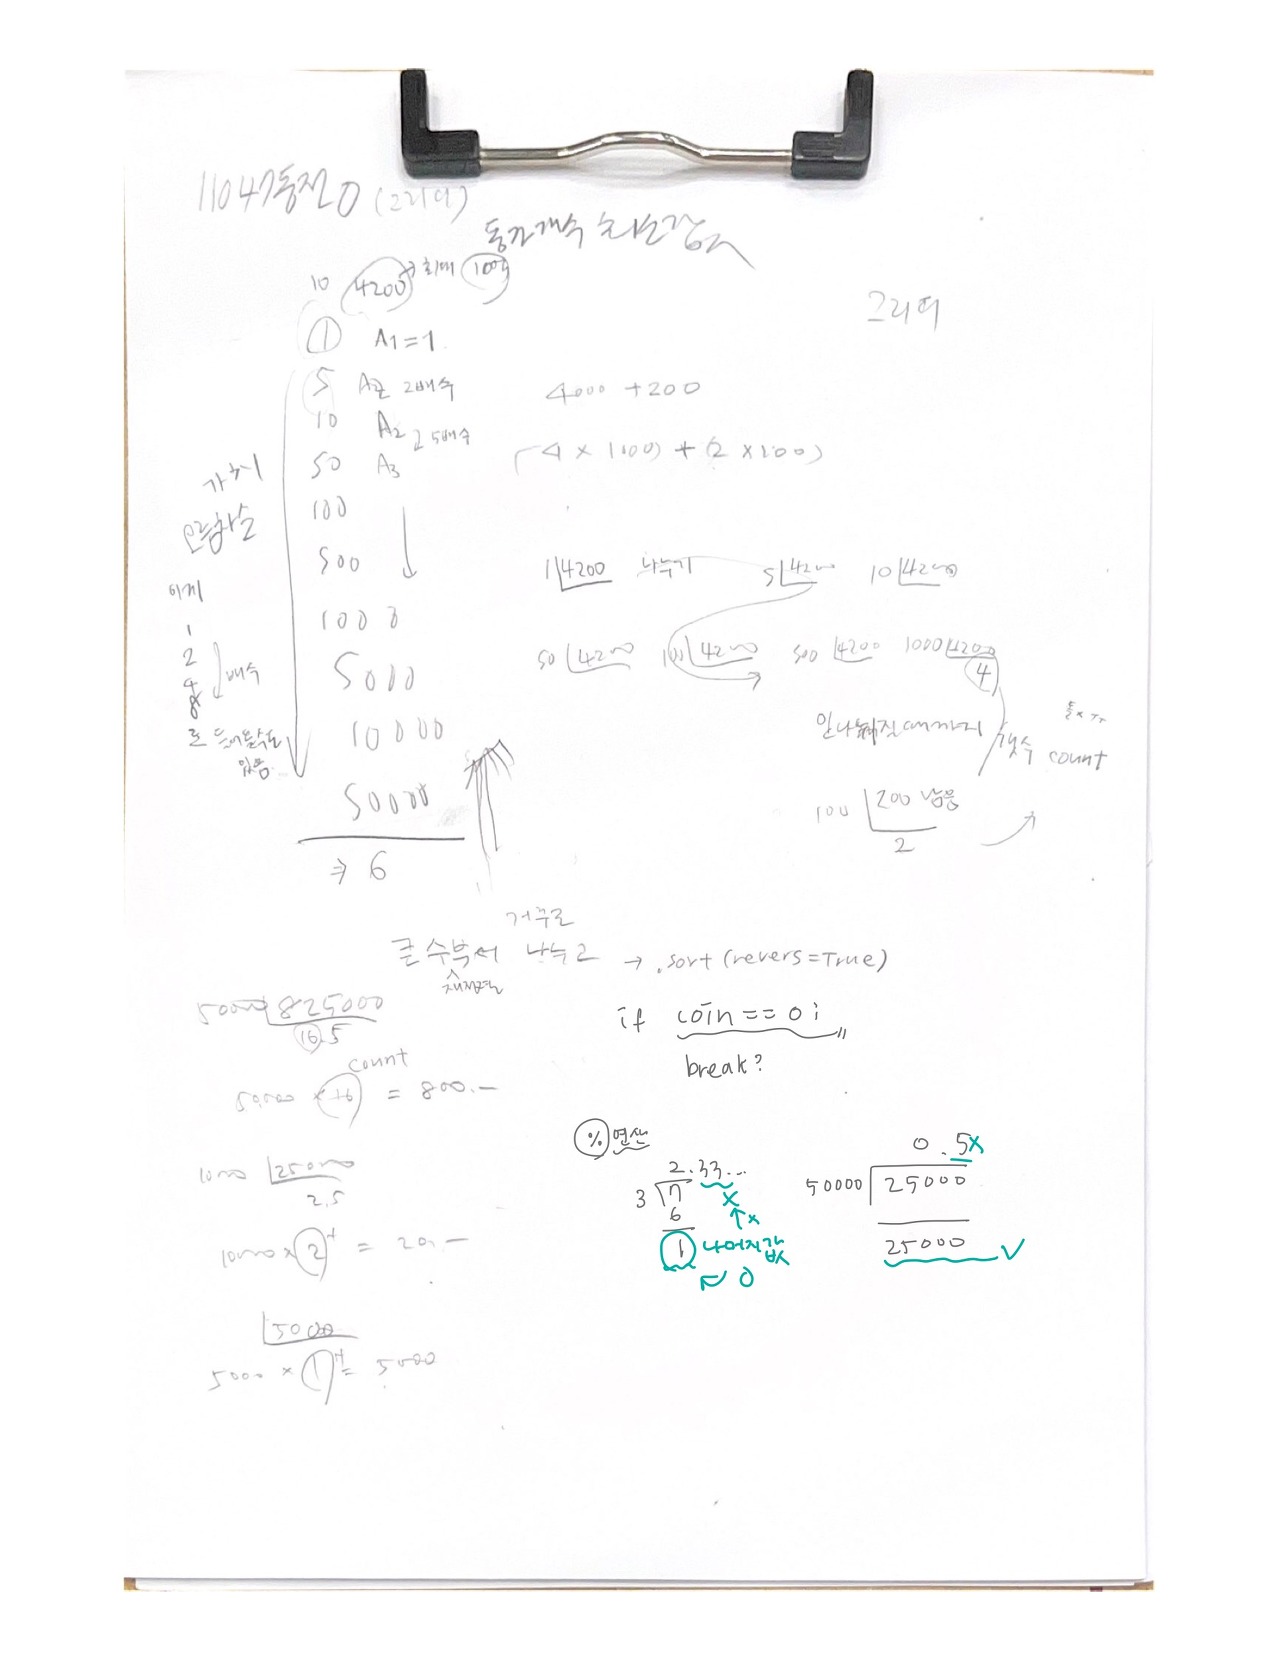 11047 동전 0 (그리디)
10 4200 → 최대 100억
그리디
1 A1=1
5 A2 2배수
10 A2 2 5배수
50 A3
100
500
1000
5000
10000
50000
⇒ 6
가치
오름차순
이게
1
2
4
8
배수
로 들어올수도
있음
4000 + 200
(4 × 1000) + (2 × 100)
1 4200 나누기 5 4200 10 4200
50 4200 100 4200 500 4200 1000 4200
4
count
100 200 남음
2
거꾸로
큰 수부터 나누고 → .sort (revers=True)
if coin == 0 ;
break?
50000 825000
16.5
count
50,000 × 16 = 800.-
10000 25000
2.5
10000 × 2 = 20.-
5000
5000 × 1 = 5000
% 연산
2.33...
3 7 x
6 x
1 나머지 값
0
0.5x
50000 25000
25000 ✓